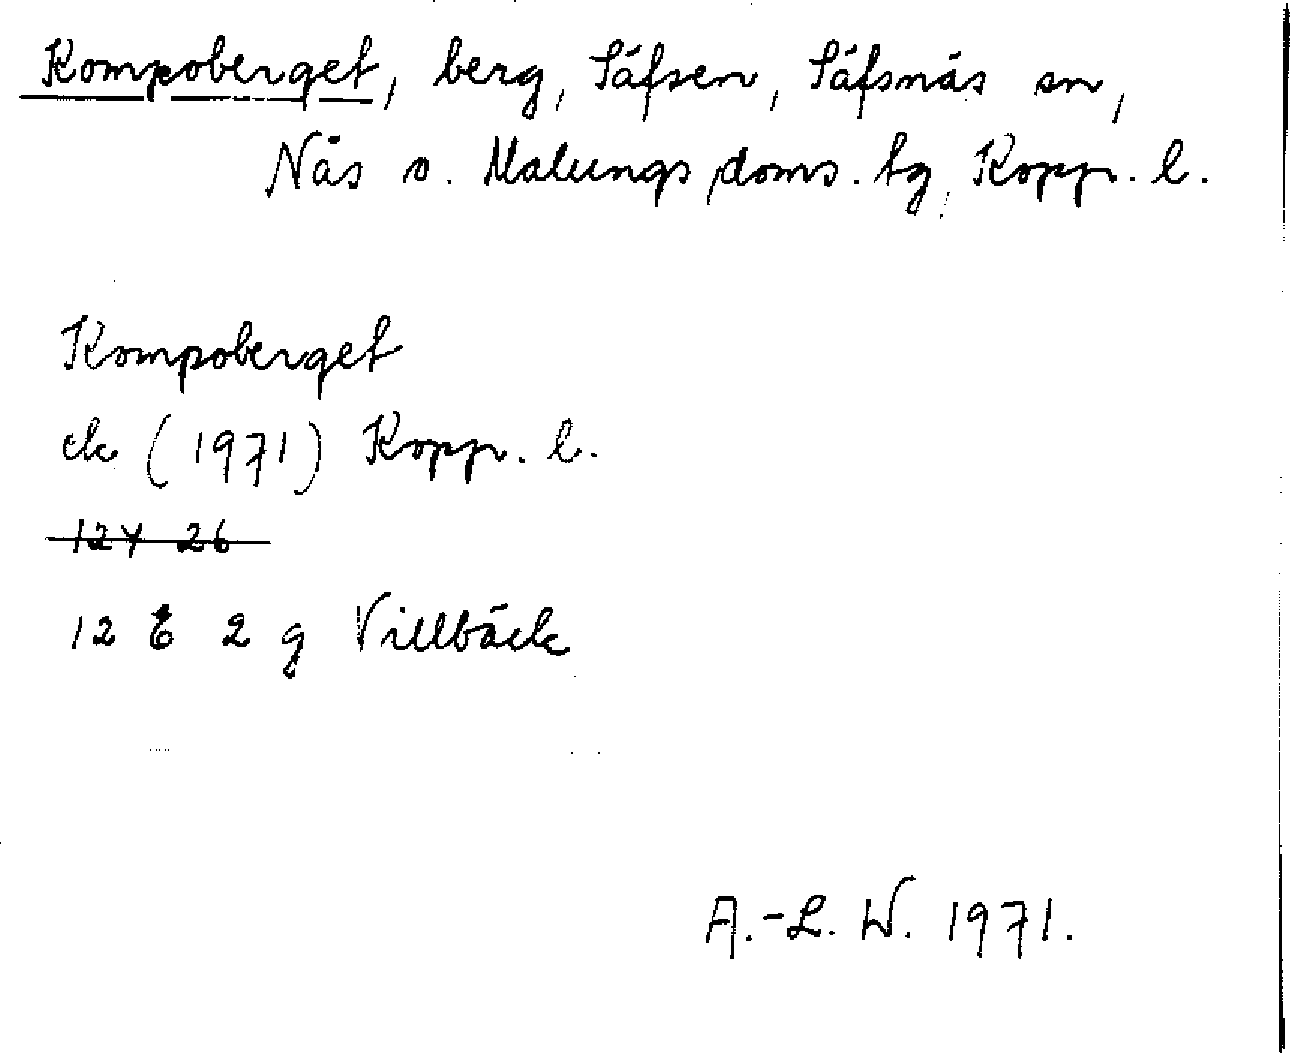 Kompoberget, berg, Säfsen, Säfsnäs sn,
Näs o. Malungs doms. tg, Kopp. l.
Kompoberget
ek (1971) Kopp. l.
12Y 26
12 E 2 g Villbäck
A.-L. W. 1971.